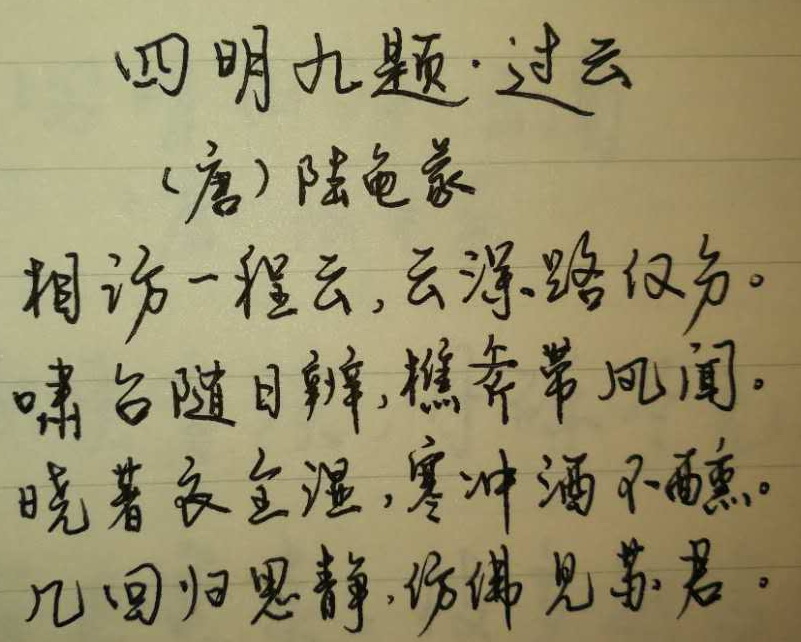 四明九题·过云
(唐)陆龟蒙
相访一程云,云深路仅分。
啸台随日辨,樵斧带风闻。
晓著衣全湿,寒冲酒不醺。
几回归思静,仿佛见苏君。